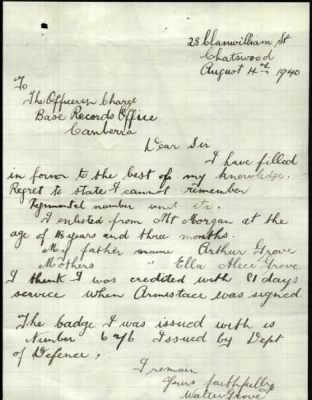 28 Clanwilliam St
Chatswood
August 4th 1940
To
The Officer in Charge
Base Records Office
Canberra
Dear Sir
I have filled
in form to the best of my knowledge.
Regret to state I cannot remember
Regimental number unit etc.
I enlisted from Mt Morgan at the
age of 16 years and three months.
My father name Arthur Grove
Mothers " Ella Alice Grove
I think I was credited with 81 days
service when Armistace was signed
The badge I was issued with is
Number 6 Issued by Dept
of Defence.
I remain
Yours faithfully
Walter Grove